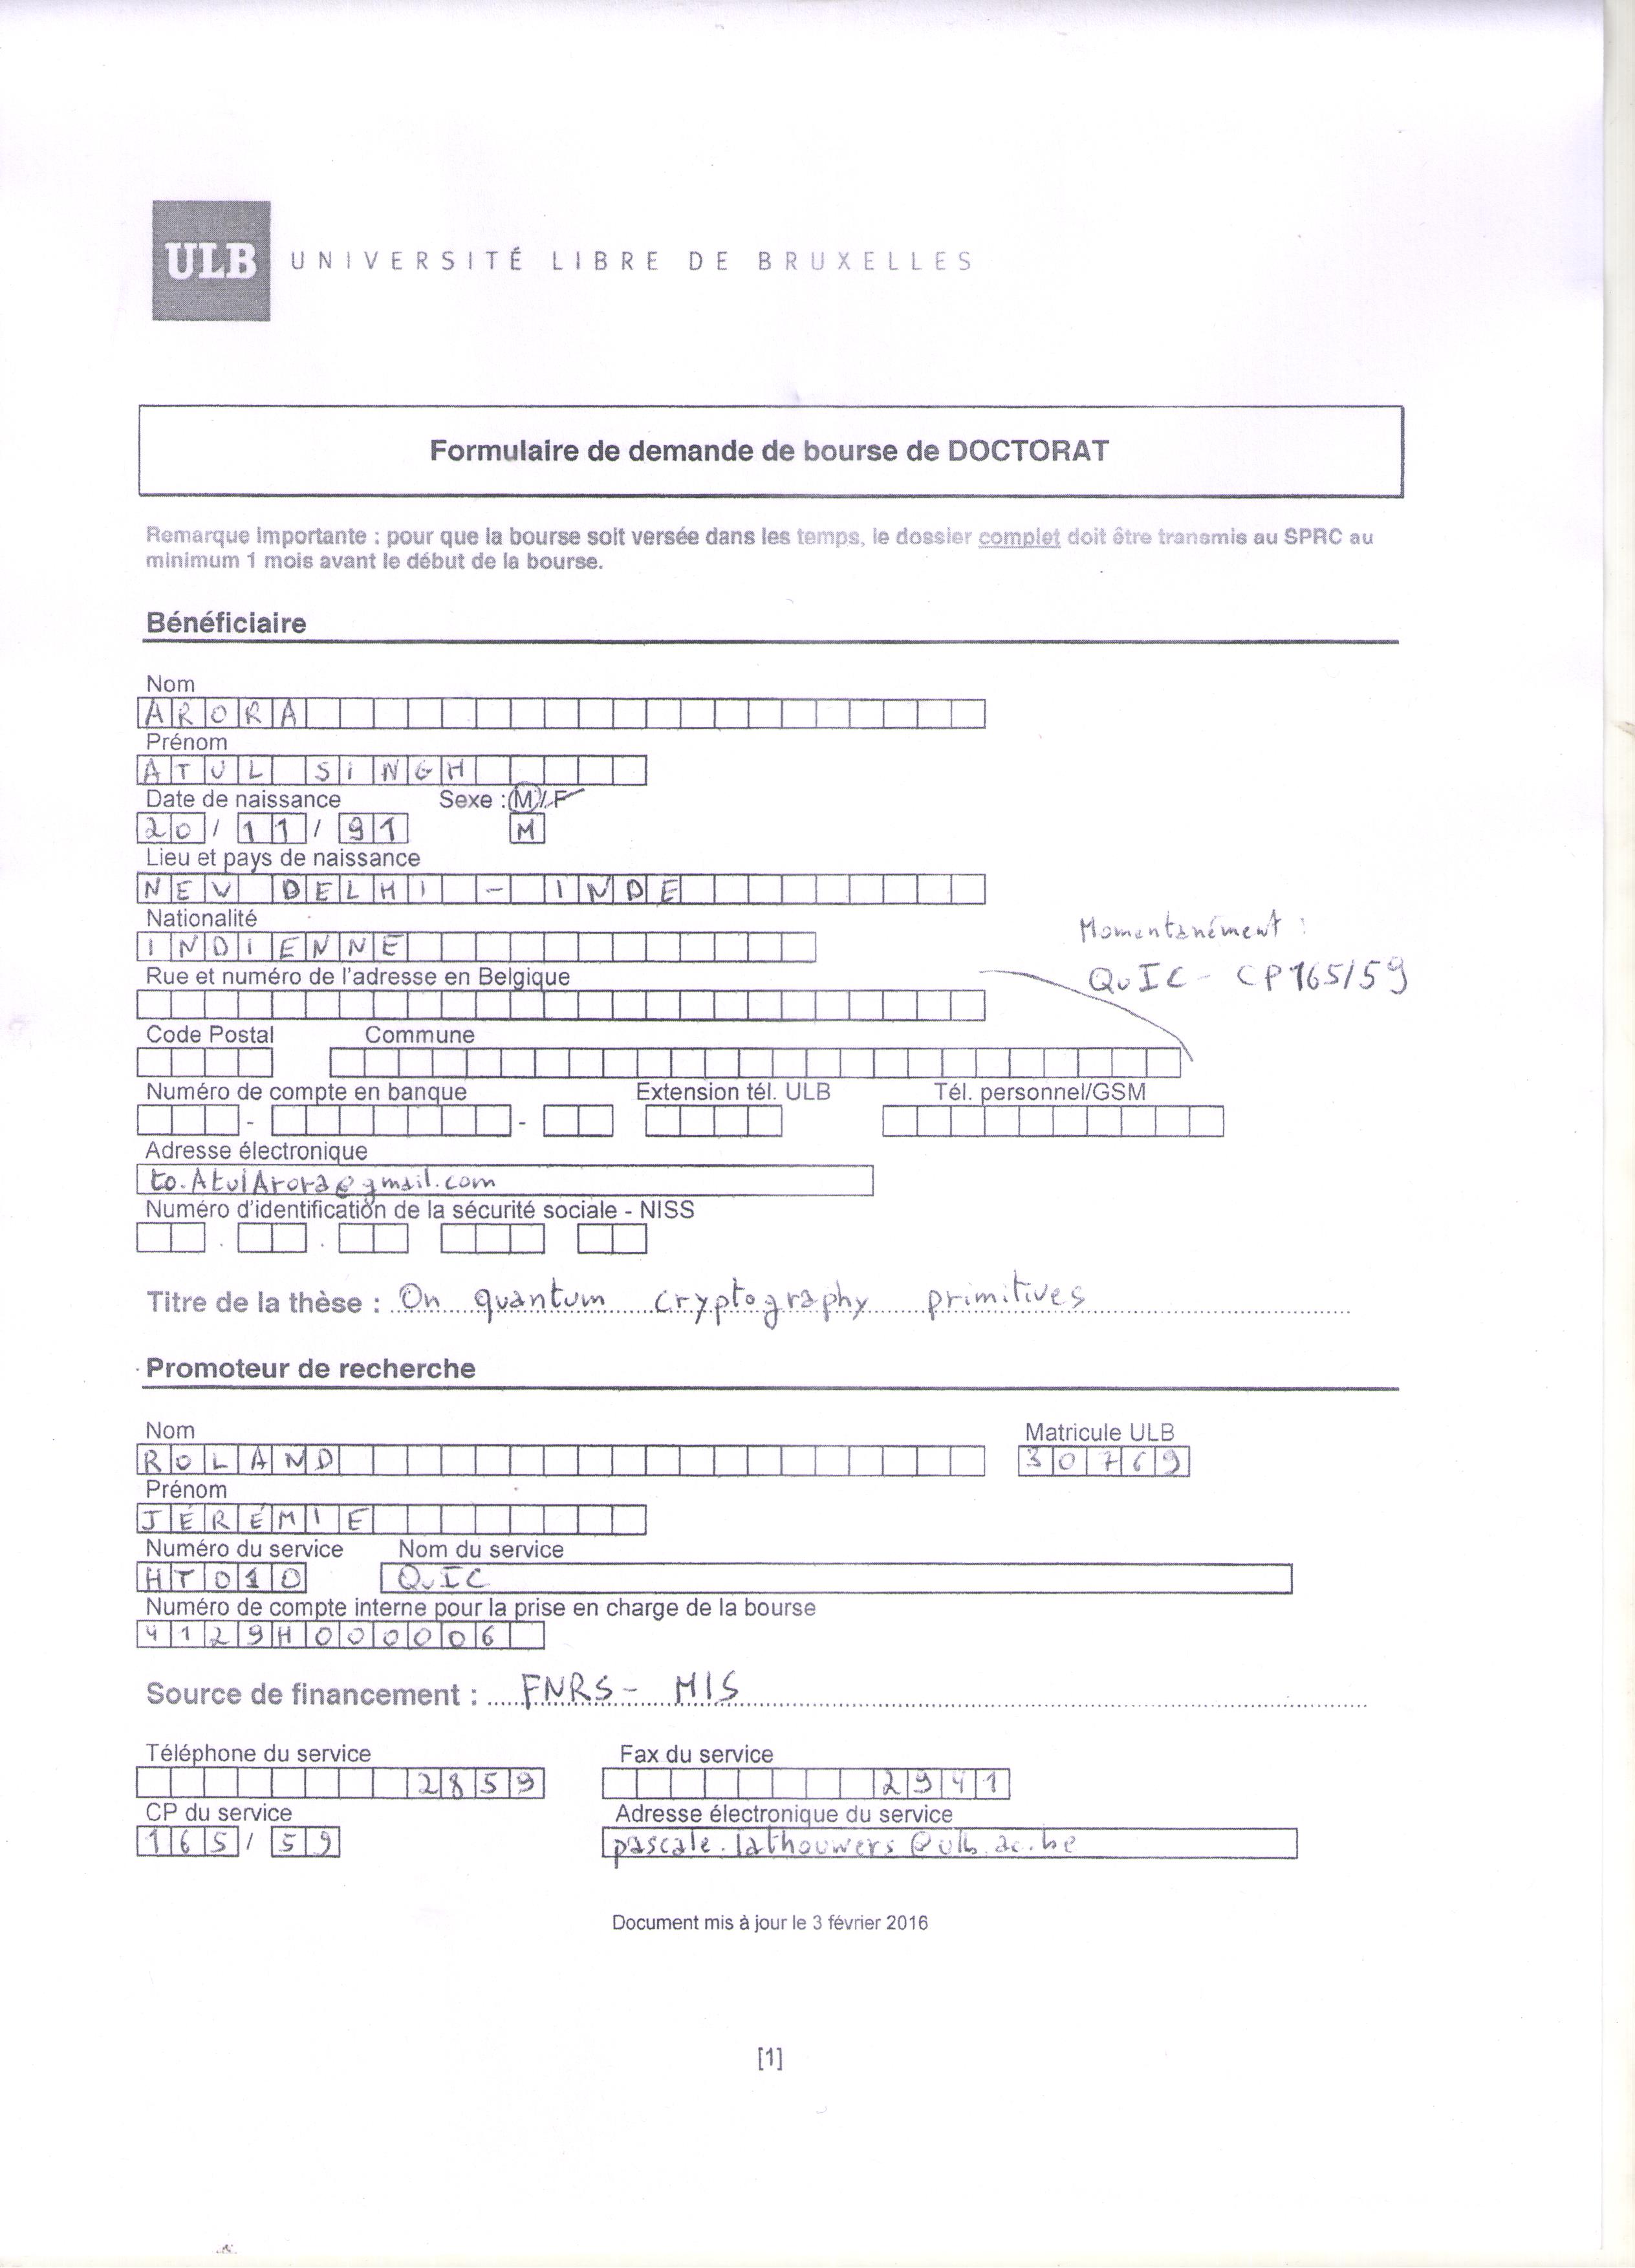 ULB UNIVERSITÉ LIBRE DE BRUXELLES
Formulaire de demande de bourse de DOCTORAT
Remarque importante : pour que la bourse soit versée dans les temps, le dossier complet doit être transmis au SPRC au
minimum 1 mois avant le début de la bourse.
Bénéficiaire
Nom
ARORA
Prénom
ATUL SINGH
Date de naissance Sexe : M/F
20/11/91 M
Lieu et pays de naissance
NEW DELHI - INDE
Nationalité
INDIENNE
Momentanément :
QuIC - CP165/59
Rue et numéro de l'adresse en Belgique
Code Postal Commune
Numéro de compte en banque Extension tél. ULB Tél. personnel/GSM
Adresse électronique
to.AtulArora@gmail.com
Numéro d'identification de la sécurité sociale - NISS
Titre de la thèse : On quantum cryptography primitives
Promoteur de recherche
Nom Matricule ULB
ROLAND 30769
Prénom
JÉRÉMIE
Numéro du service Nom du service
HT010 QuIC
Numéro de compte interne pour la prise en charge de la bourse
4129H000006
Source de financement : FNRS - MIS
Téléphone du service Fax du service
2859 2941
CP du service Adresse électronique du service
165/59 pascale.lathouwers@ulb.ac.be
Document mis à jour le 3 février 2016
[1]